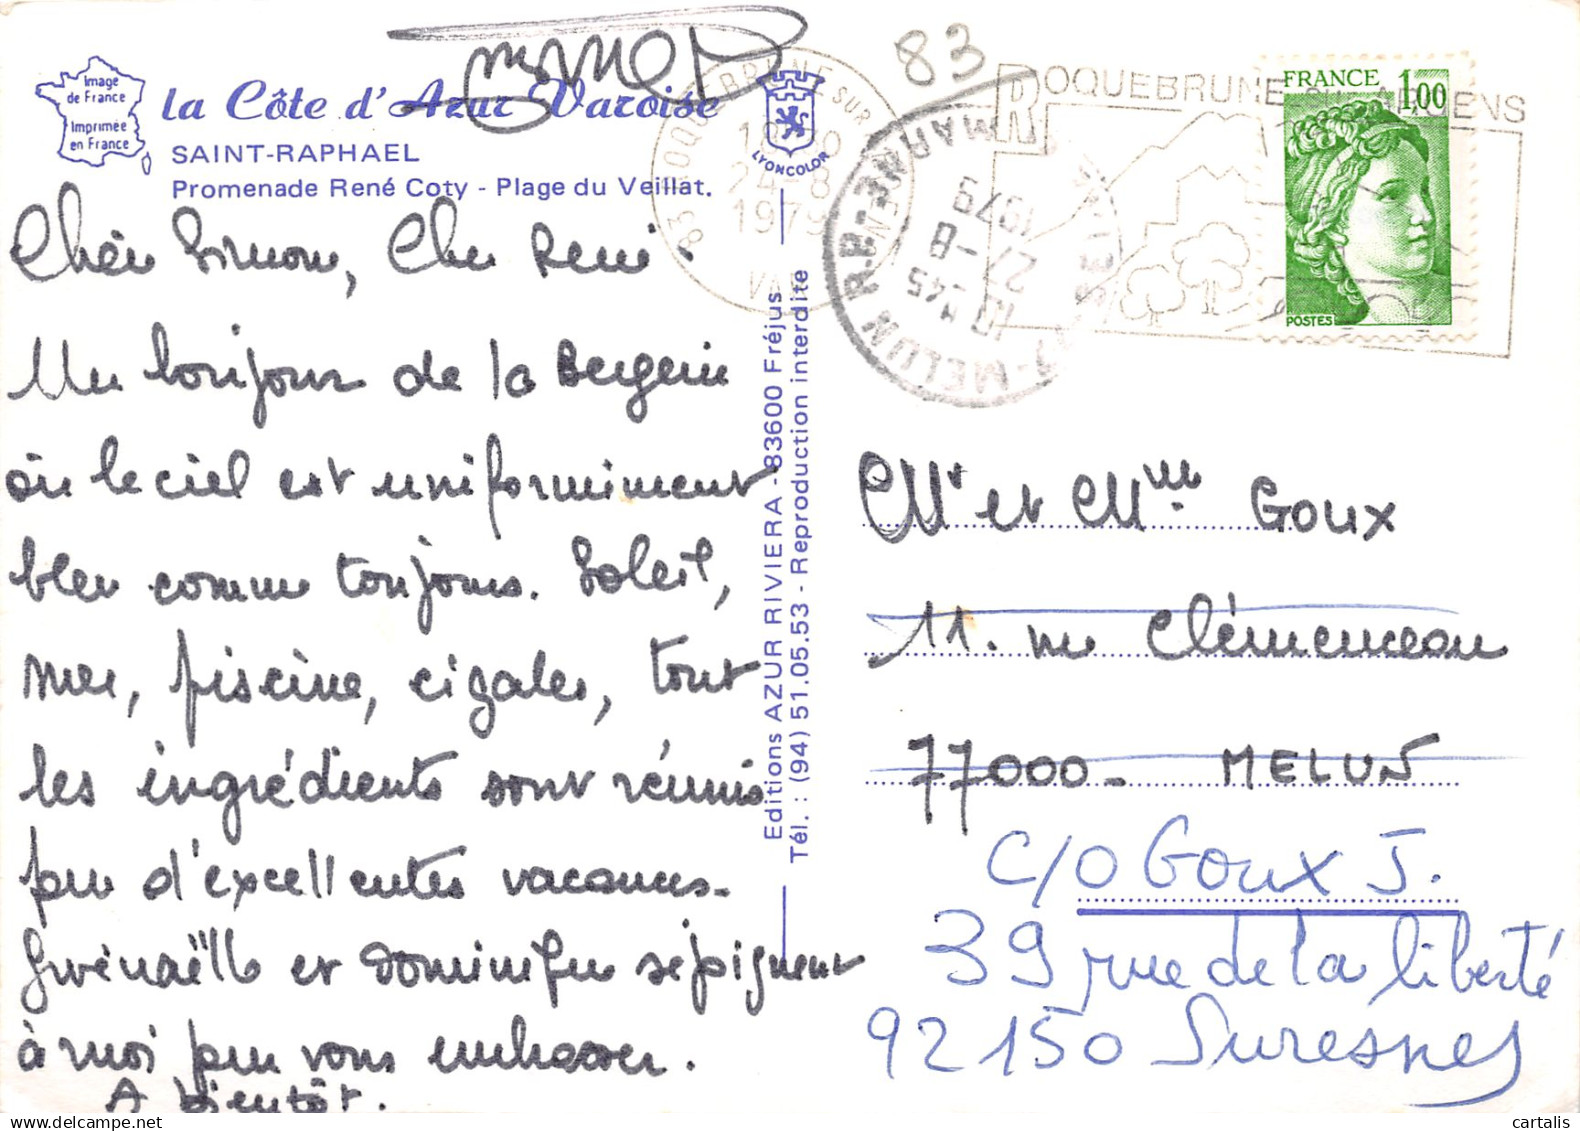 Image
de France
Imprimée
en France
la Côte d'Azur Varoise
SAINT-RAPHAEL
Promenade René Coty - Plage du Veillat.
LYONCOLOR
Chère Simone, Cher René.
Un bonjour de la Bergerie
où le ciel est uniformément
bleu comme toujours. Soleil,
mer, piscine, cigales, tout
les ingrédients sont réunis
pour d'excellentes vacances.
Gwénaëlle et Dominique se joignent
à moi pour vous embrasser.
A bientôt.
Editions AZUR RIVIERA - 83600 Fréjus
Tél. : (94) 51.05.53 - Reproduction interdite
83 ROQUEBRUNE SUR ARGENS
24-8
1979
VAR
83
ROQUEBRUNE ARGENS
MELUN R.P.
SEINE-ET-MARNE
10 H 45
27 -8
1979
FRANCE 1,00
POSTES
Mr et Mme Goux
11. rue Clémenceau
77000 - MELUN
C/O Goux J.
39 rue de la liberté
92150 Suresnes
cartalis